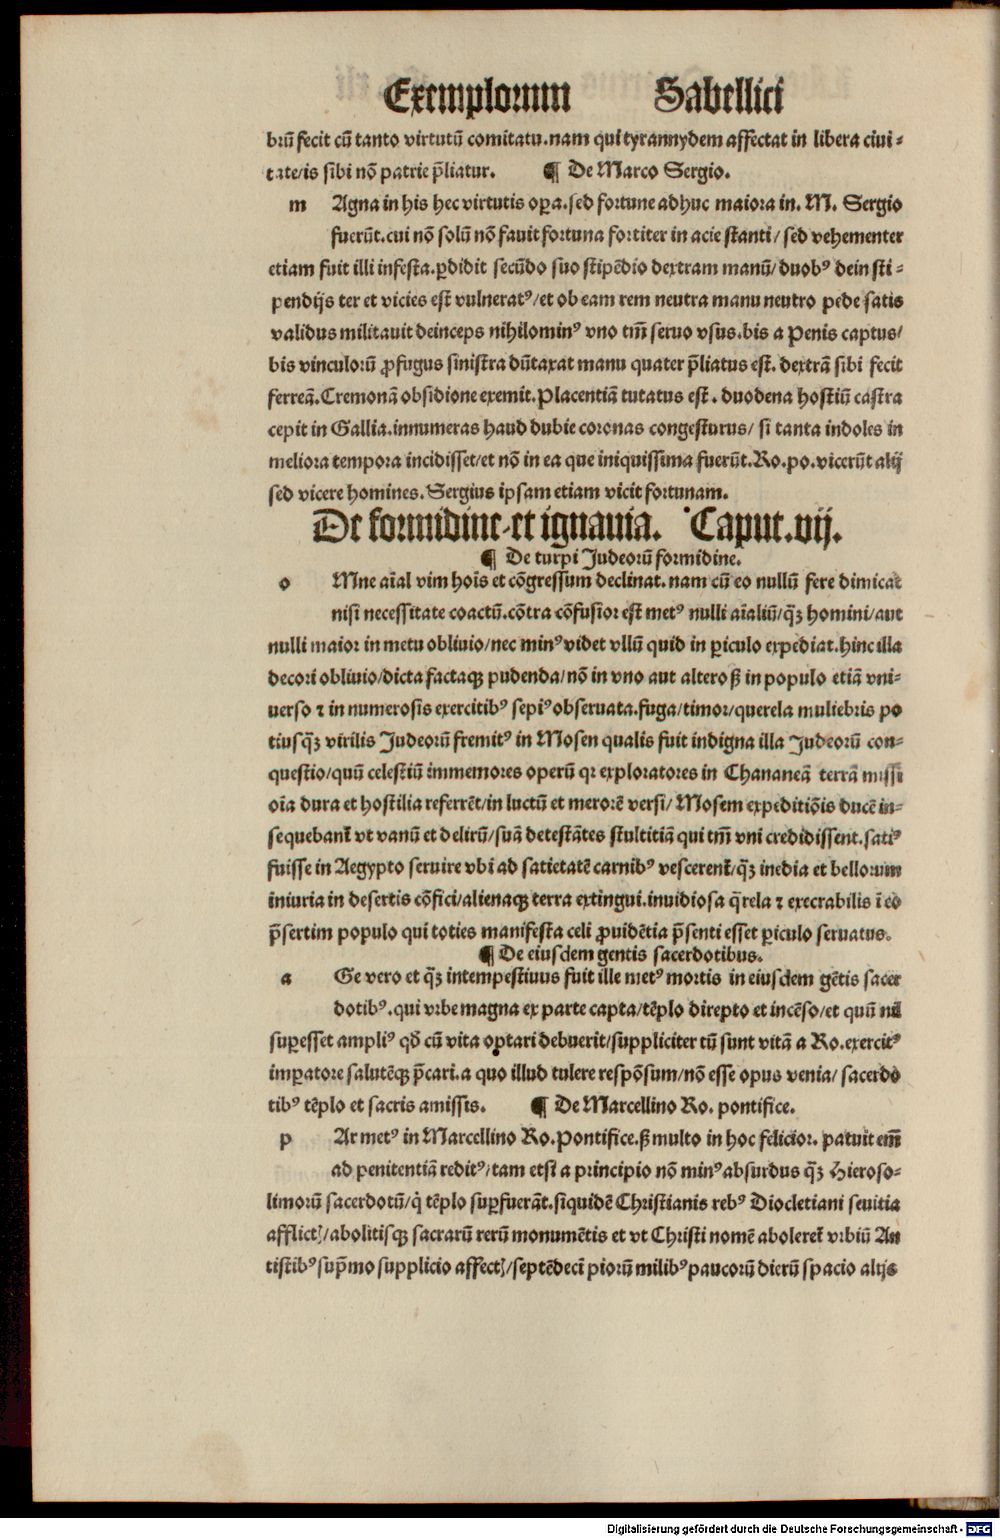 Exemplorum Sabellici
brū fecit cū tanto virtutū comitatu.nam qui tyrannydem affectat in libera ciui-
tate/is sibi nō patrie p̄liatur. ¶ De Marco Sergio.
m Agna in his hec virtutis oꝑa.sed fortune adhuc maiora in. M. Sergio
fuerūt.cui nō solū nō fauit fortuna fortiter in acie stanti/ sed vehementer
etiam fuit illi infesta.ꝑdidit secūdo suo stipēdio dextram manū/duobꝰ dein sti-
pendijs ter et vicies est vulneratꝰ/et ob eam rem neutra manu neutro pede satis
validus militauit deinceps nihilominꝰ vno tm̄ seruo vsus.bis a Penis captus/
bis vinculorū ꝓfugus sinistra dūtaxat manu quater p̄liatus est. dextrā sibi fecit
ferreā.Cremonā obsidione exemit.Placentiā tutatus est. duodena hostiū castra
cepit in Gallia.innumeras haud dubie coronas congesturus/ si tanta indoles in
meliora tempora incidisset/et nō in ea que iniquissima fuerūt.Ro.po.vicerūt alij
sed vicere homines.Sergius ipsam etiam vicit fortunam.
De formidine et ignauia. Caput.vij.
¶ De turpi Judeorū formidine.
o Mne aīal vim hoīs et cōgressum declinat.nam cū eo nullū fere dimicat
nisi necessitate coactū.cōtra cōfusior est metꝰ nulli aīaliū/q̄ꝫ homini/aut
nulli maior in metu obliuio/nec minꝰ videt vllū quid in ꝑiculo expediat.hinc illa
decori obliuio/dicta factaqꝫ pudenda/nō in vno aut altero sꝫ in populo etiā vni-
uerso ⁊ in numerosis exercitibꝰ sepiꝰ obseruata.fuga/timor/querela muliebris po
tiusq̄ꝫ virilis Judeorū fremitꝰ in Mosen qualis fuit indigna illa Judeorū con-
questio/quū celestiū immemores operū qꝛ exploratores in Chananeā terrā missi
oīa dura et hostilia referrēt/in luctū et merorē versi/ Mosem expeditiōis ducē in-
sequebant᷑ vt vanū et delirū/suā detestātes stultitiā qui tm̄ vni credidissent.satiꝰ
fuisse in Aegypto seruire vbi ad satietatē carnibꝰ vescerent᷑/q̄ꝫ inedia et bellorum
iniuria in desertis cōfici/alienaqꝫ terra extingui.inuidiosa q̄rela ⁊ execrabilis ī eo
p̄sertim populo qui toties manifesta celi ꝓuidētia p̄senti esset ꝑiculo seruatus.
¶ De eiusdem gentis sacerdotibus.
a Ge vero et q̄ꝫ intempestiuus fuit ille metꝰ mortis in eiusdem gētis sacer
dotibꝰ.qui vrbe magna ex parte capta/tēplo direpto et incēso/et quū nil
suꝑesset ampliꝰ qd̄ cū vita optari debuerit/suppliciter tū sunt vitā a Ro.exercitꝰ
imꝑatore salutēqꝫ p̄cari.a quo illud tulere respōsum/nō esse opus venia/ sacerdo
tibꝰ tēplo et sacris amissis. ¶ De Marcellino Ro. pontifice.
p Ar metꝰ in Marcellino Ro.Pontifice.sꝫ multo in hoc felicior. patuit em̄
ad penitentiā reditꝰ/tam etsi a principio nō minꝰ absurdus q̄ꝫ Hieroso-
limorū sacerdotū/q̇ tēplo suꝑfuerāt.siquidē Christianis rebꝰ Diocletiani seuitia
afflictꝭ/abolitisqꝫ sacrarū rerū monumētis et vt Christi nomē aboleret᷑ vrbiū An
tistibꝰ sup̄mo supplicio affectꝭ/septēdecī piorū milibꝰ paucorū dierū spacio alijs
Digitalisierung gefördert durch die Deutsche Forschungsgemeinschaft - DFG